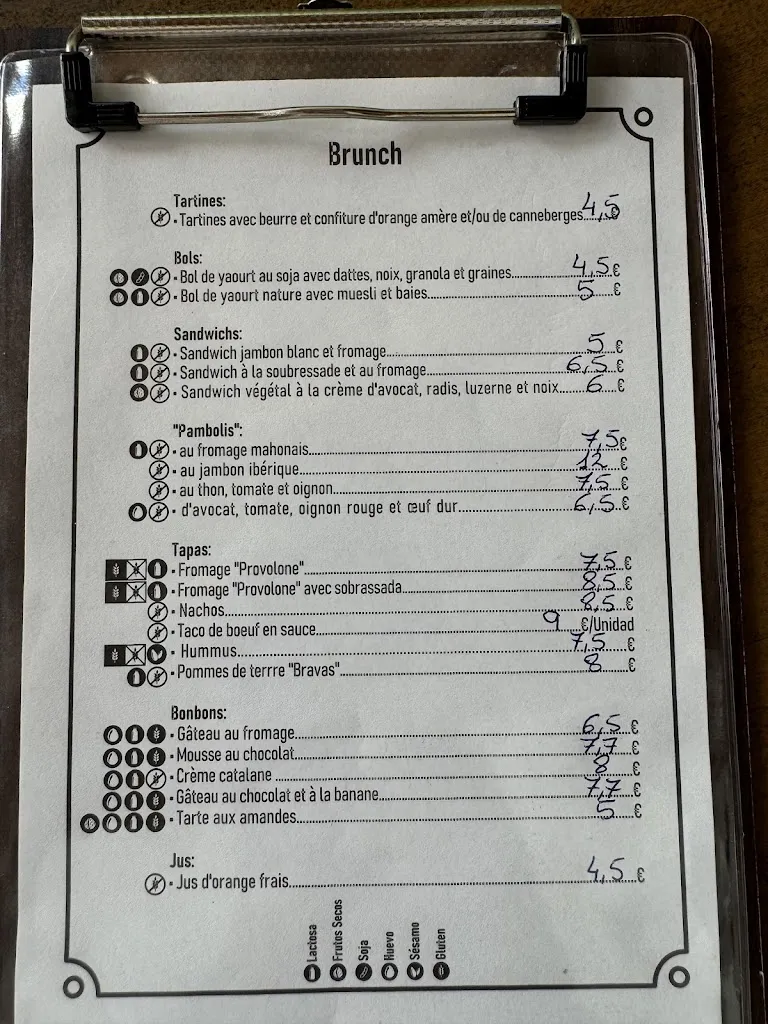 Brunch
Tartines:
• Tartines avec beurre et confiture d'orange amère et/ou de canneberges......4,5€
Bols:
• Bol de yaourt au soja avec dattes, noix, granola et graines......4,5€
• Bol de yaourt nature avec muesli et baies......5€
Sandwichs:
• Sandwich jambon blanc et fromage......5€
• Sandwich à la soubressade et au fromage......6,5€
• Sandwich végétal à la crème d'avocat, radis, luzerne et noix......6€
"Pambolis":
• au fromage mahonais......7,5€
• au jambon ibérique......12€
• au thon, tomate et oignon......7,5€
• d'avocat, tomate, oignon rouge et œuf dur......6,5€
Tapas:
• Fromage "Provolone"......7,5€
• Fromage "Provolone" avec sobrassada......8,5€
• Nachos......8,5€
• Taco de boeuf en sauce......9€/Unidad
• Hummus......7,5€
• Pommes de terrre "Bravas"......8€
Bonbons:
• Gâteau au fromage......6,5€
• Mousse au chocolat......7,7€
• Crème catalane......8€
• Gâteau au chocolat et à la banane......7,7€
• Tarte aux amandes......5€
Jus:
• Jus d'orange frais......4,5€
Lactosa
Frutos Secos
Soja
Huevo
Sésamo
Gluten